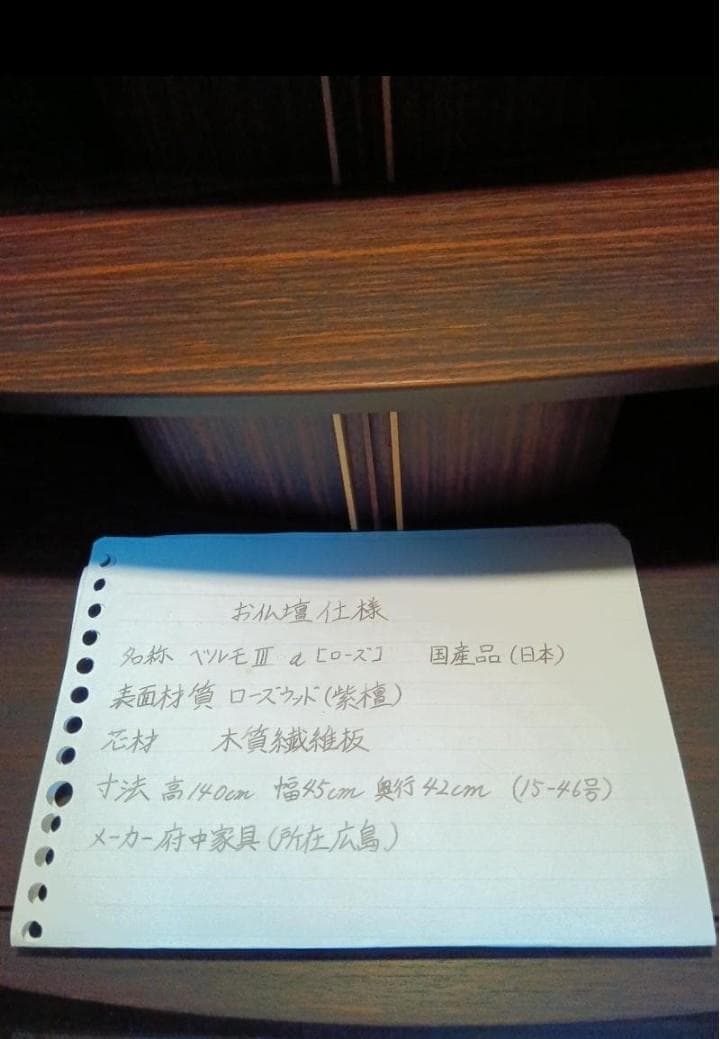 お仏壇仕様
名称 ベルモⅢ a [ローズ] 国産品(日本)
表面材質 ローズウッド(紫檀)
芯材 木質繊維板
寸法 高140cm 幅45cm 奥行42cm (15-46号)
メーカー府中家具(所在広島)